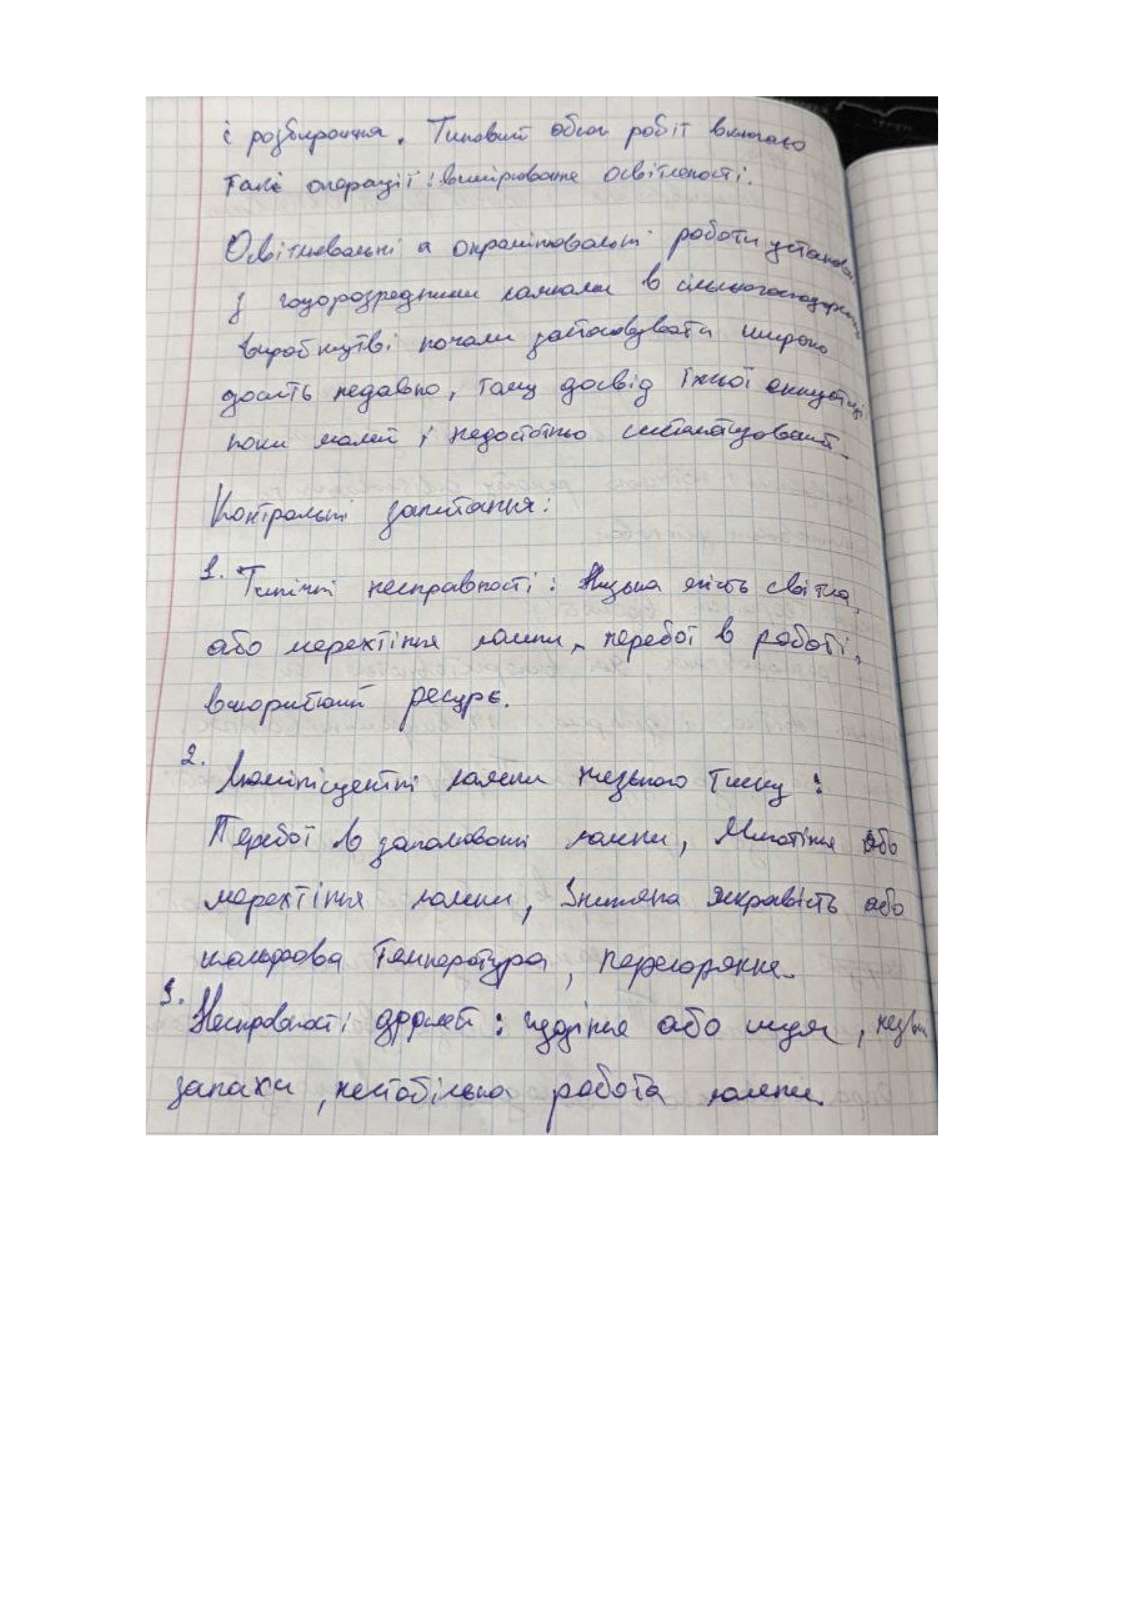 і розбирання. Типовий обсяг робіт включає
такі операції: вимірювання освітленості.
Освітлювальні а опромінювальні роботи установи
з газорозрядними лампами в сільськогосподарсь
виробництві почали застосовувати широко
досить недавно, тому досвід їхньої експуатації
поки малий і недостатньо систематизований.
Контрольні запитання:
1. Типічні несправності: Низька якість світла,
або мерехтіння лампи, перебої в роботі,
вморитий ресурс.
2. Люмінісцентні лампи низького тиску:
Перебої в запалювані лампи, Миготіння або
мерехтіння лампи, Знижена яскравість або
кольорова температура, перегоряння.
3. Несправності дрлей: гудіння або шум, незви
запахи, нестабільна робота лампи.